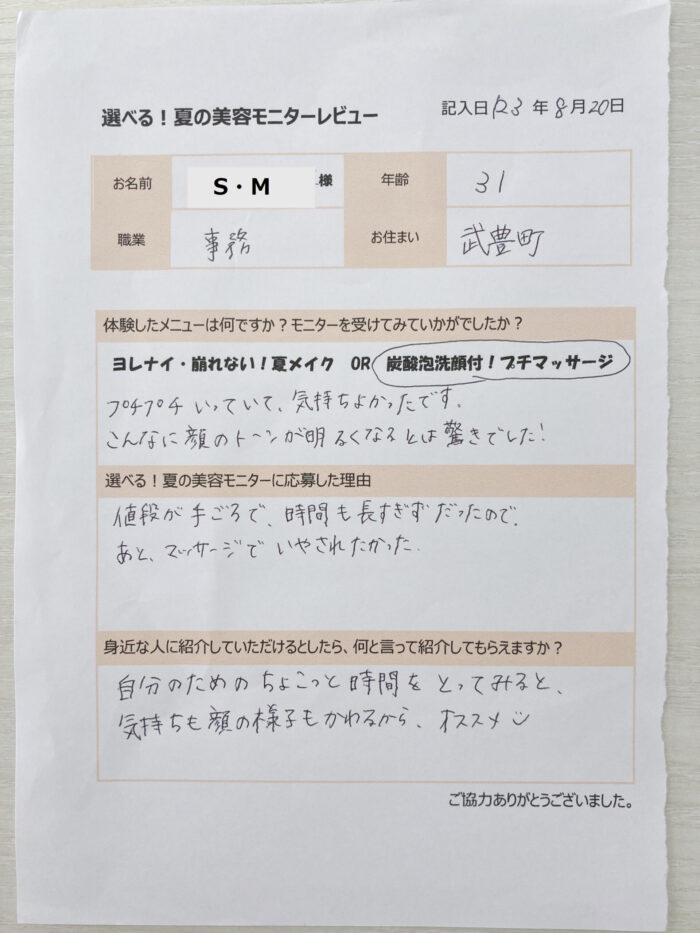 選べる！夏の美容モニターレビュー
記入日R3年8月20日
お名前 S・M 様 年齢 31
職業 事務 お住まい 武豊町
体験したメニューは何ですか？モニターを受けてみていかがでしたか？
ヨレナイ・崩れない！夏メイク OR 炭酸泡洗顔付！プチマッサージ
プチプチいっていて、気持ちよかったです。
こんなに顔のトーンが明るくなるとは驚きでした！
選べる！夏の美容モニターに応募した理由
値段が手ごろで、時間も長すぎずだったので。
あと、マッサージでいやされたかった.
身近な人に紹介していただけるとしたら、何と言って紹介してもらえますか？
自分のためのちょこっと時間をとってみると、
気持ちも顔の様子もかわるから、オススメ
ご協力ありがとうございました。